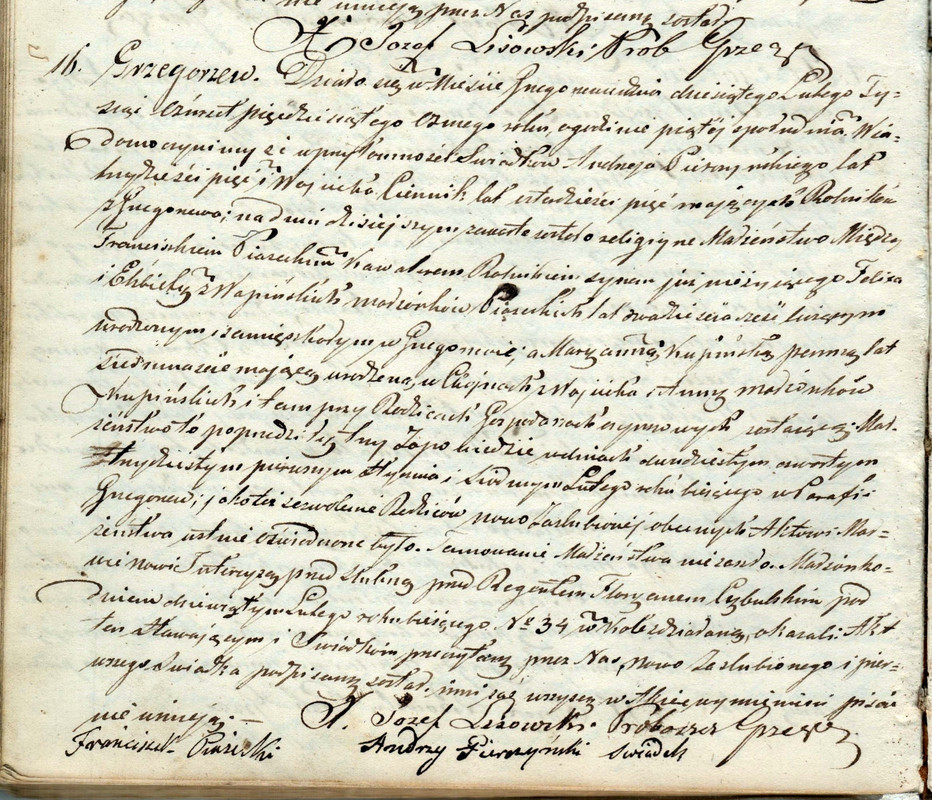 nie umieją przez Nas podpisany został
X. Jozef Lisowski Prob Grzeg
16. Grzegorzew. Działo się w Mieście Grzegorzewie dnia dziesiątego Lutego Ty=
siąc Ośmset pięćdziesiątego Osmego roku, o godzinie piątéj społudnia, Wia=
domo czynimy że w przytomności Swiadków Andrzeja Pierzyńskiego lat
trzydzieści pięć i Wojciecha Ciennik lat czterdzieści pięć mających Rolników
z Grzegorzewa; na dniu dzisiejszym zawarte zostało religijne Małżeństwo Między
Franciszkiem Piaseckim Kawalerem Rolnikiem synem już nieżyjącego Felixa
i Elżbiety z Wapińskich małżonków Piaseckich lat dwadzieścia sześć liczącym
urodzonym i zamieszkałym w Grzegorzewie; a Maryanną Krupińską panną lat
siedmnaście mającą urodzoną w Chojnach z Wojciecha i Anny małżonków
Krupińskich i tam przy Rodzicach Gospodarzach czynszowych zostającą; Mał=
żeństwo to poprzedziły trzy Zapowiedzie w dniach dwudziestym czwartym
trzydziestym pierwszym Stycznia i Siódmym Lutego roku bieżącego w Parafii
Grzegorzew; jakoteż zezwolenie Rodziców nowo Zaślubionej obecnych Aktowi Mał=
żeństwa ustnie oświadczone było. Tamowanie Małżeństwa nie zaszło. Małżonko=
wie nowi Intercyzę przed Slubną przed Regentem Floryanem Cybulskim pod
dniem dziewiątym Lutego roku bieżącego No 34 w Kole zdziałaną, okazali. Akt
ten Stawającym i Swiadkom przeczytany przez Nas, nowo Zaślubionego i pier=
wszego Swiadka podpisany został, inni zaś wszyscy w Akcie wymienieni pisać
nie umieją. —
X. Jozef Lisowski. Proboszcz Grzeg
Franciszek Piasiecki Andrzy Pierzyński swiadek